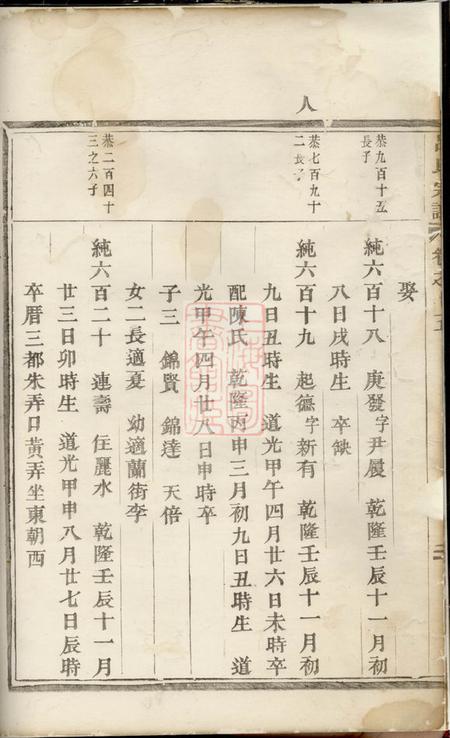 八
恭九百十五
長子
恭七百九十
二長子
恭二百四十
三之六子
娶
純六百十八 庚發字尹履 乾隆壬辰十一月初
八日戌時生 卒缺
純六百十九 起德字新有 乾隆壬辰十一月初
九日丑時生 道光甲午四月廿六日未時卒
配陳氏 乾隆丙申三月初九日丑時生 道
光甲午四月廿八日申時卒
子三 錦賢 錦達 天倍
女二長適夏 幼適蘭街李
純六百二十 連壽 住麗水 乾隆壬辰十一月
廿三日卯時生 道光甲申八月廿七日辰時
卒厝三都朱弄口黃弄坐東朝西